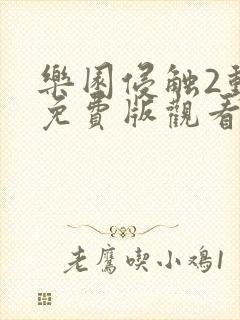 樂園侵触2動
免費版觀看
老鷹喫小鸡1